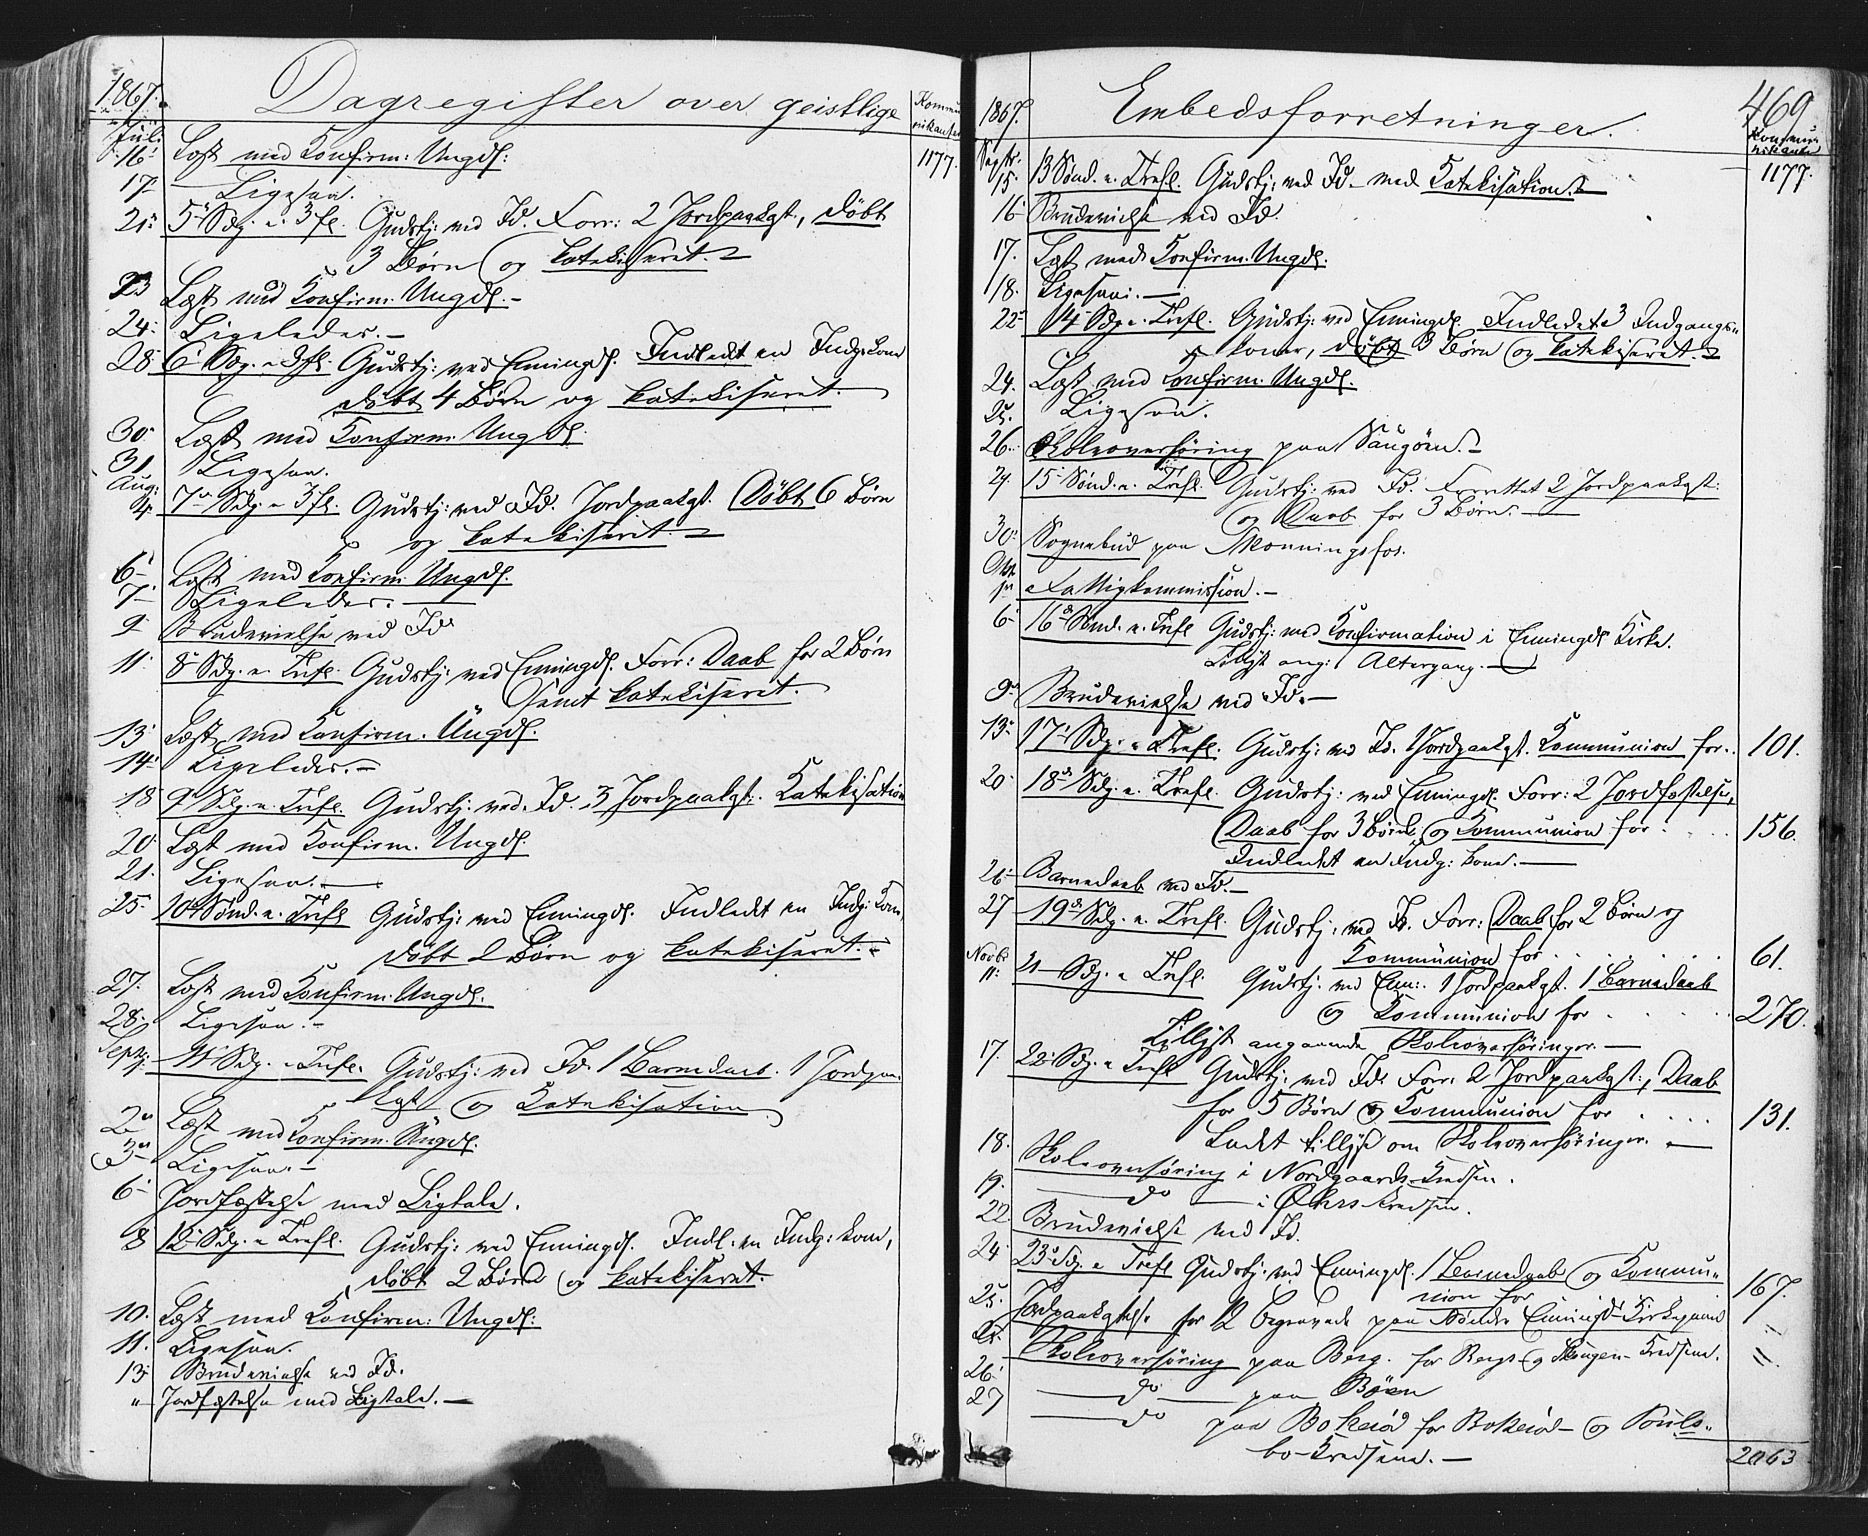 1867. Dagregister over geistlige Kommunikanter
Juli 16. Læst med Konfirm: Ungd: 1177.
17. Ligesaa.
21. 5 Sdg. e. Trfl. Gudstj: ved Id. Forr: 2 Jordpaakgt., døbt
3 Børn og katekiseret.
23 Læst med Konfirm. Ungd.
24. Ligeledes.
28. 6 Sdg. e. Trfl. Gudstj: ved Enningd. Indledt en Indg: Kone
døbt 4 Børn og katekiseret.
30. Læst med Konfirm. Ungd.
31. Ligesaa.
Aug: 4. 7 Sdg. e. Trfl. Gudstj: ved Id. Jordpaakgt. Døbt 6 Børn
og katekiseret.
6. Læst med Konfirm. Ungd.
7. Ligeledes.
9. Brudevielse ved Id.
11. 8 Sdg. e. Trefl. Gudstj: ved Enningd. Forr: Daab for 2 Børn
samt katekiseret.
13. Læst med Konfirm. Ungd.
14. Ligeledes.
18 9 Sdg. e. Trefl. Gudstj: ved Id. 3 Jordpaakgt. Katekisation
20. Læst med Konfirm. Ungd.
21. Ligesaa.
25. 10 Sønd. e. Trefl. Gudstj: ved Enningd. Indledt en Indg: Kone,
døbt 2 Børn og katekiseret.
27. Læst med Konfirm. Ungd.
28. Ligesaa.
Septbr. 11 Sdg. e. Trefl. Gudstj: ved Id. 1 Barnedaab. 1 Jordpaa-
kgt og Katekisation.
2. Læst med Konfirm. Ungd.
3. Ligesaa.
6. Jordfæstelse med Ligtale.
8 12 Sdg. e. Trefl. Gudstj: ved Enningd. Indl. en Indg: Kone,
døbt 2 Børn og katekiseret.
10. Læst med Konfirm: Ungd:
11. Ligesaa.
13. Brudevielse ved Id.
" Jordfæstelse med Ligtale.
1867. Embedsforretninger. 469
Kommunikanter
Septr. 15. 13 Sønd. e. Trefl. Gudstj: ved Id. med Katekisation. 1177.
16. Brudevielse ved Id.
17. Læst med Konfirm. Ungd.
18. Ligesaa.
22. 14 Sdg. e. Trefl. Gudstj: ved Enningd. Indledet 3 Indgangs-
koner, døbt 3 Børn og katekiseret.
24. Læst med Konfirm. Ungd.
25. Ligesaa.
26. Skoleoverhøring paa Saugøen.
29. 15 Sønd. e. Trefl. Gudstj: ved Id. Forrettet 2 Jordpaakgt:
og Daab for 3 Børn.
30. Sognebud paa Monningsfos.
Okt Fattigkommission.
6. 16 Sønd. e. Trefl. Gudstj: med Konfirmation i Enningd. Kirke.
Tillyst ang: Altergang.
9. Brudevielse ved Id.
13. 17 Sdg. e. Trefl. Gudstj: ved Id. 1 Jordpaakgt. Kommunion for.. 101.
20. 18 Sdg. e. Trefl. Gudstj: ved Enningd. Forr: 2 Jordfæstelse,
Daab for 3 Børn og Kommunion for . . . 156.
Indledet en Indg: Kone.
26. Barnedaab ved Id.
27 19 Sdg. e. Trefl. Gudstj: ved Id. Forr: Daab for 2 Børn og
Kommunion for . . . . . 61.
Novbr. 11. 21 Sdg. e. Trefl. Gudstj: ved Enn:. 1 Jordpaakgt. 1 Barnedaab
og Kommunion for . . . . 270.
Tillyst angaaende Skoleoverhøringer.
17. 22 Sdg. e. Trefl. Gudstj: ved Id. Forr: 2 Jordpaakgt:, Daab
for 5 Børn og Kommunion for . . . . 131.
Ladt tillyse om Skoleoverhøringer.
18. Skoleoverhøring i Nordgaards-Kredsen.
19. do i Ørs Kredsen.
22 Brudevielse ved Id.
24. 23 Sdg. e. Trefl. Gudstj: ved Enningd. 1 Barnedaab og Kommu-
nion for 167.
25. Jordpaakgtelse for 12 begravede paa Enningd. Kirkegaard "
Skoleoverhøring paa Berg. for Bergs og Kredsene. "
26. do paa Bøen
27 do paa Bokerød for Bokerød og Pouls-
bo-Kredsene. 2063